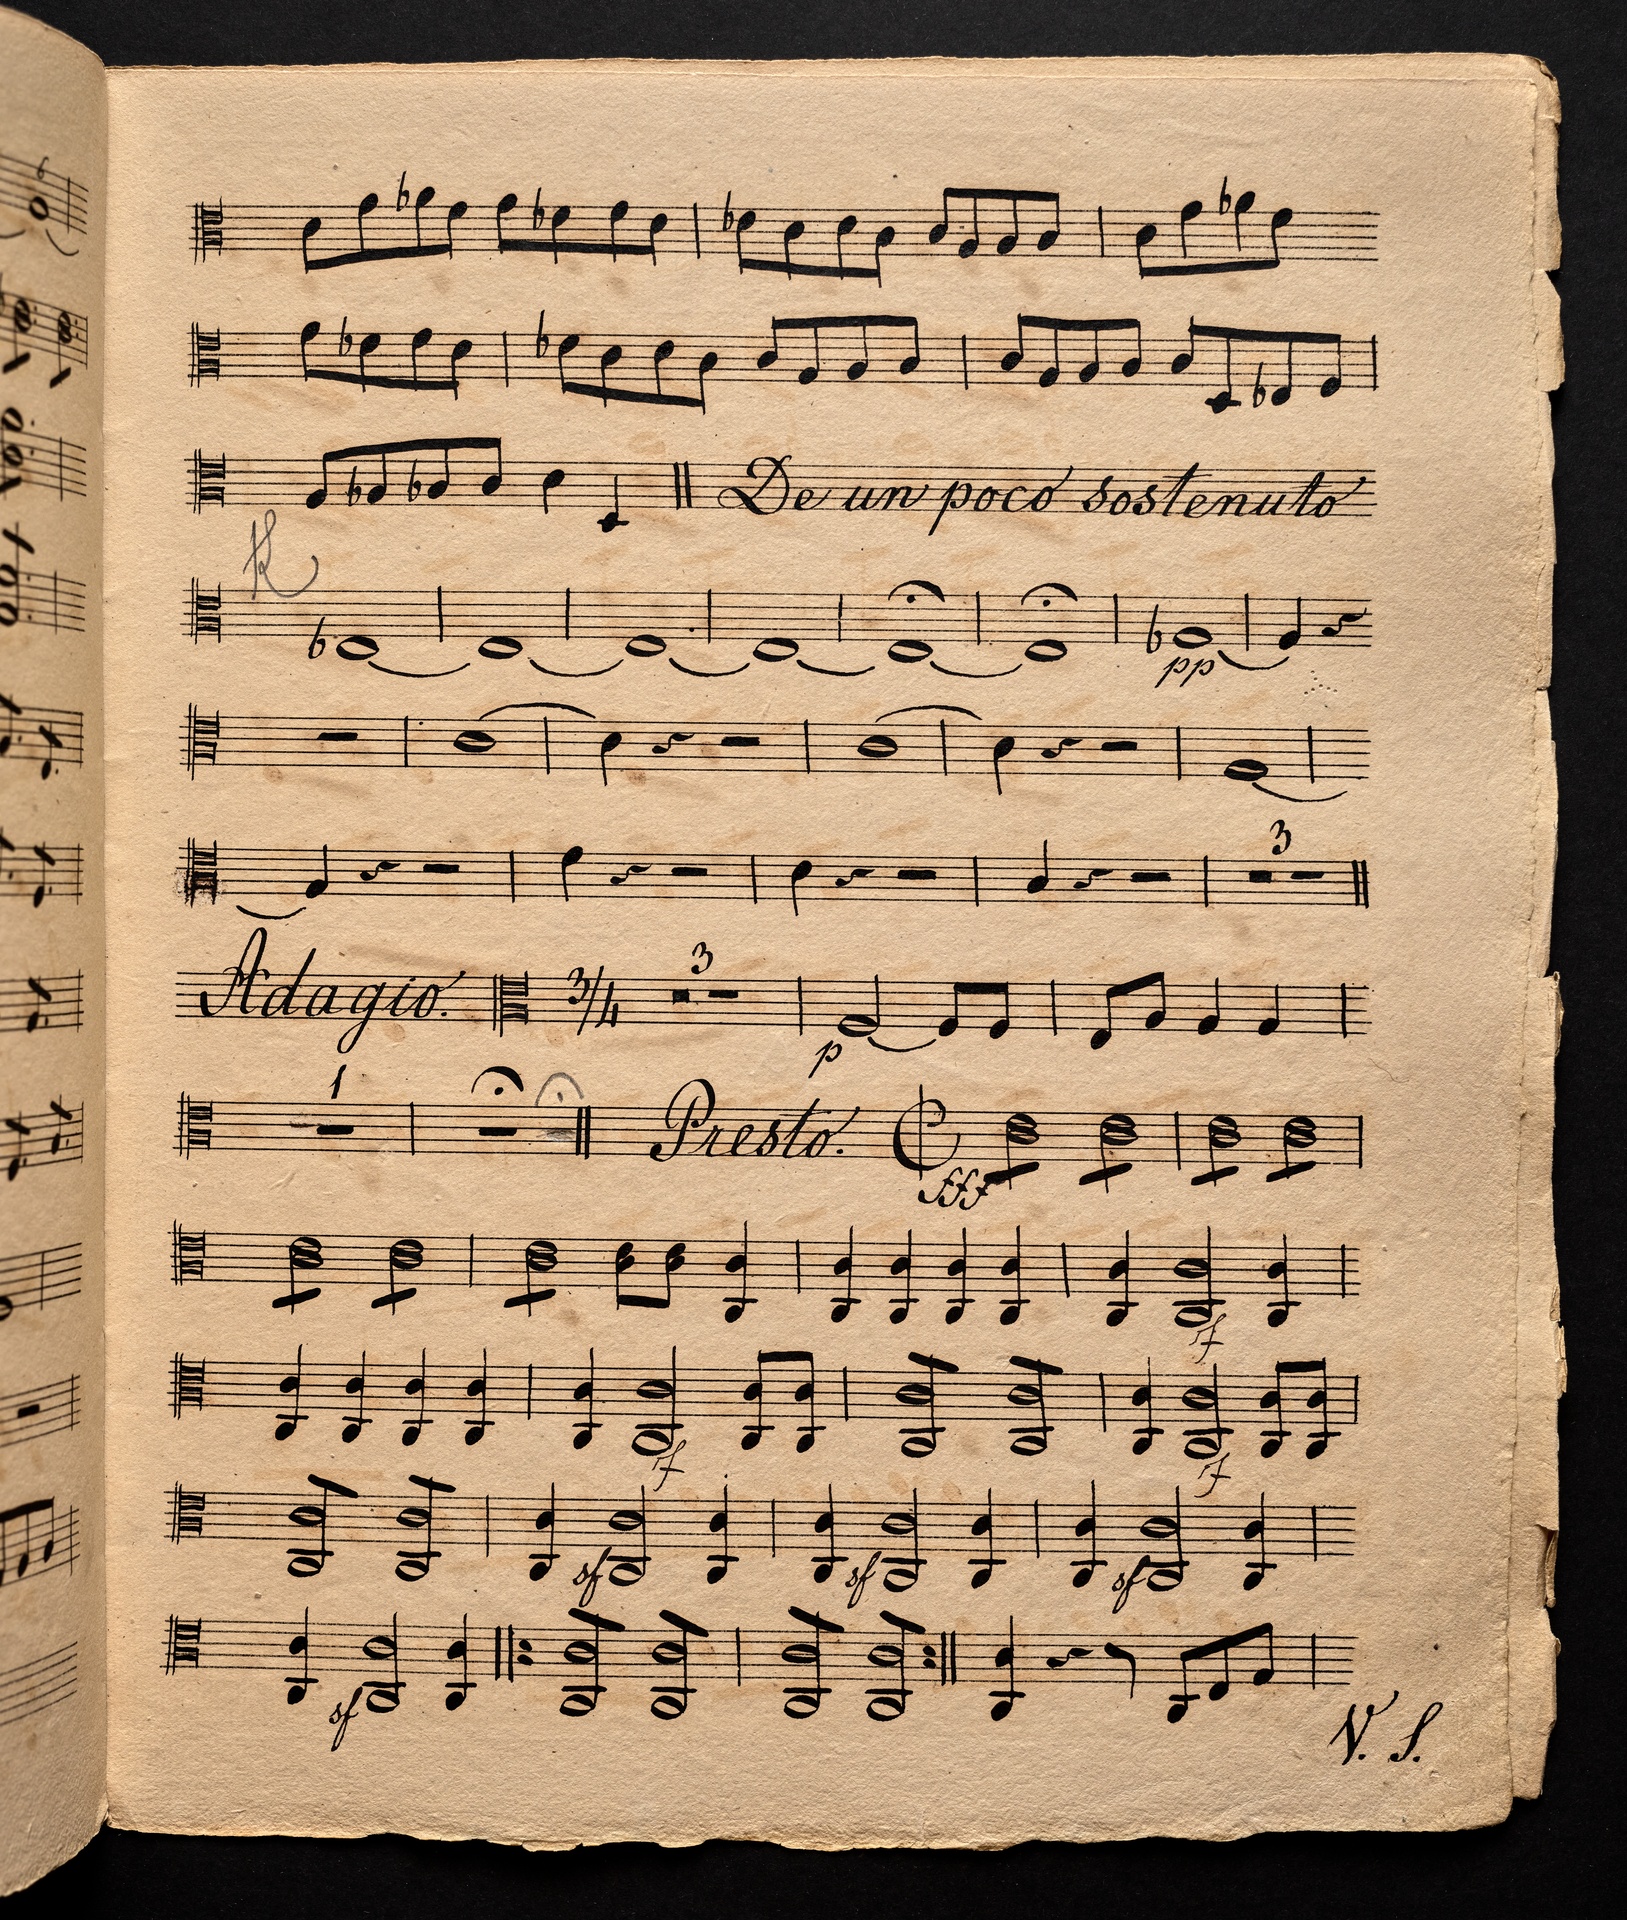 De un poco sostenuto
K
pp
3
Adagio. 3/4 3
p
1
Presto. C
fff
sf
sf sf
sf sf sf
sf
V. S.